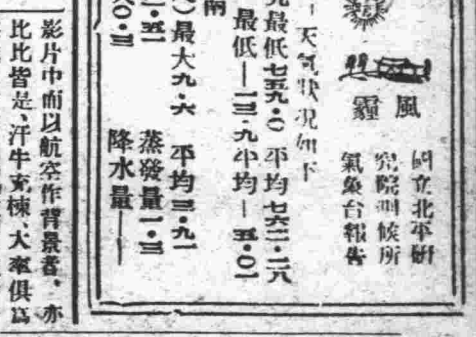 風霾
國立北平研
究院測候所
氣象台報告
天氣狀况如下
最低七五九·〇 平均七六二·二八
最低—一三·九 平均—五·〇一
最大九·六 平均三·九一
蒸發量一·三
降水量—
影片中而以航空作背景者,亦
比比皆是、汗牛充棟、大率俱爲